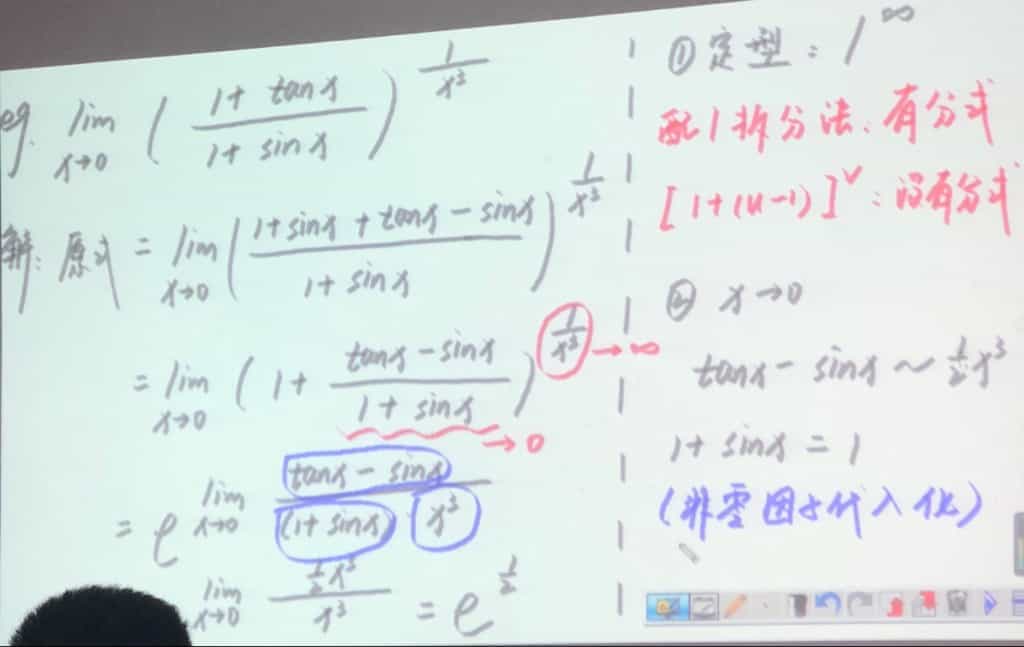 eg. lim x→0 ( (1 + tanx) / (1 + sinx) )^(1/x³)
解: 原式 = lim x→0 ( (1+sinx + tanx - sinx) / (1 + sinx) )^(1/x³)
= lim x→0 ( 1 + (tanx - sinx) / (1 + sinx) )^(1/x³) → ∞
→ 0
= e^( lim x→0 (tanx - sinx) / ((1+sinx) x³) )
lim x→0 (½x³) / x³ = e^(1/2)
① 定型: 1^∞
配1拆分法: 有分式
[1+(u-1)]^v: 没有分式
② x→0
tanx - sinx ~ ½x³
1 + sinx = 1
(非零因子代入化)